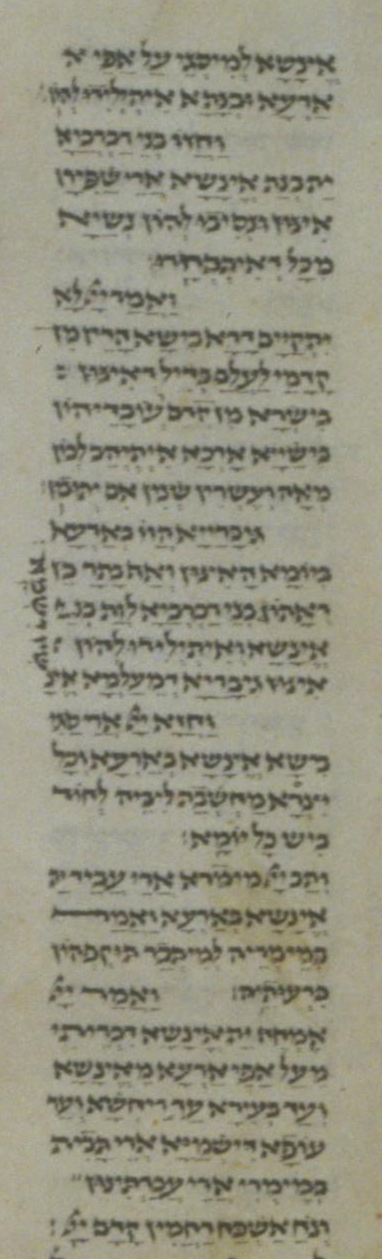 אינשא למיסגי על אפי א
ארעא ובנתא איתילידו להון
וחזו בני רברביא
ית בנת אינשא ארי שפירן
אינון ונסיבו להון נשיא
מכל דאיתרעיאו
ואמר ייי לא
יתקיים דרא בישא הדין מן
קדמי לעלם בדיל דאינון
בישרא מן עובדיהון
בישייא ארכא איתיהב להון
מאה ועשרין שנין אם יתובון
גיבריא הוו בארעא
ביומיא האינון ואף בתר כן
דאתון בני רברביא לות בנת
אינשא ואיתילידו להון
אינון גיבריא דמעלמא אינ
וחזא ייי ארי סגי
בישא אינשא בארעא וכל
יצרא מחשבת ליביה לחוד
ביש כל יומא
ותב ייי מימרא ארי עביד ית
אינשא בארעא ואמר
במימריה למיתבר תוקפהון
כרעותיה ואמר ייי
אמחה ית אינשא דבריתי
מעל אפי ארעא מאינשא
ועד בעירא עד ריחשא ועד
עופא דישמייא ארי תבית
במימרי ארי עבדתינון
ונח אשכח רחמין קדם ייי